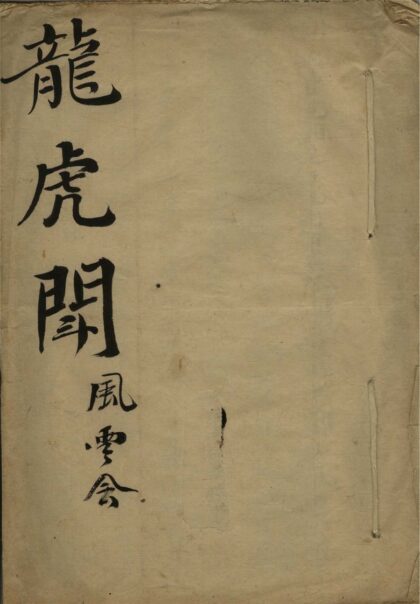 龍虎閗
風雲会